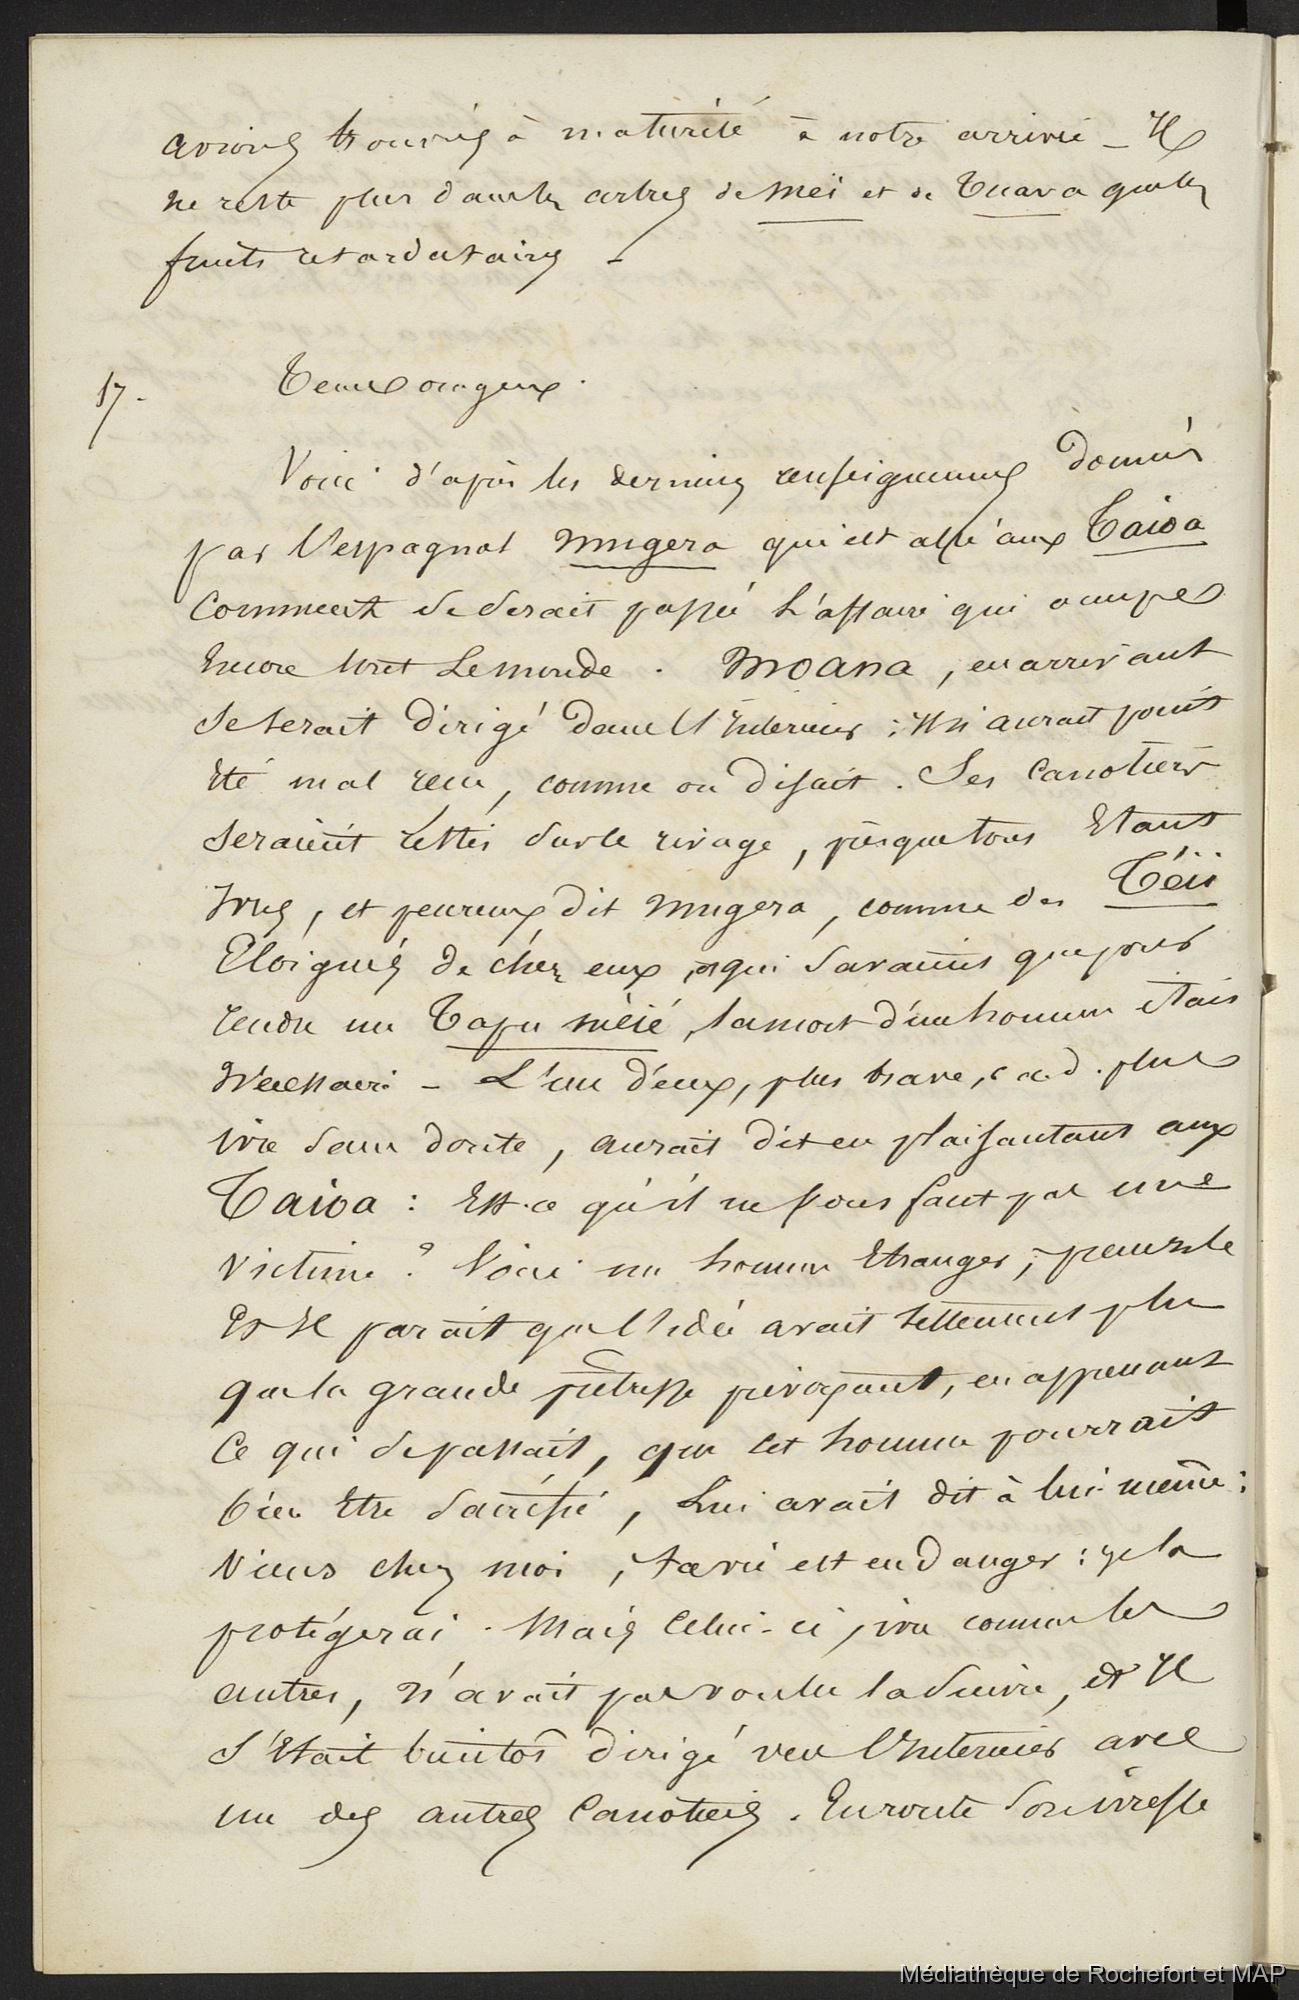 avions trouvés à maturité à notre arrivée _ Il
ne reste plus dans les arbres de Meï et de Tuava que les
fruits retardataires _
17. Temps orageux.
Voici d'après les derniers renseignemens donnés
par l'espagnol Mugera qui est allé aux Taioa
Comment se serait passée L'affaire qui occupe
Encore tout Le monde. Moana, en arrivant
se serait dirigé dans l'Interieur ; Il n'aurait point
Eté mal reçu, comme on disait. Ses Canotiers
seraient restés sur le rivage, presque tous Etant
Ivres, et peureux dit Mugera, comme des Téii
Eloignés de chez eux, qui savaient que pour
rendre un Tapu mèïé, la mort d'un homme était
Nécessaire _ L'un d'eux, plus brave, c a.d. plus
ivre sans doute, aurait dit en plaisantant aux
Taioa : Est-ce qu'il ne vous faut pas une
victime ? Voici un homme Etranger ;
Et Il parait que l'idée avait tellement plu
que la grande prêtresse prévoyant, en apprenant
Ce qui se passait, que cet homme pourrait
bien Etre Sacrifié, Lui avait dit à lui-même :
Viens chez moi, ta vie est en danger : je la
protégerai. Mais Celui-ci, ivre comme les
autres, n'avait pas voulu la suivre, et Il
s'Etait bientôt dirigé vers l'Interieur avec
un des autres Canotiers. En route Son ivresse
Médiathèque de Rochefort et MAP